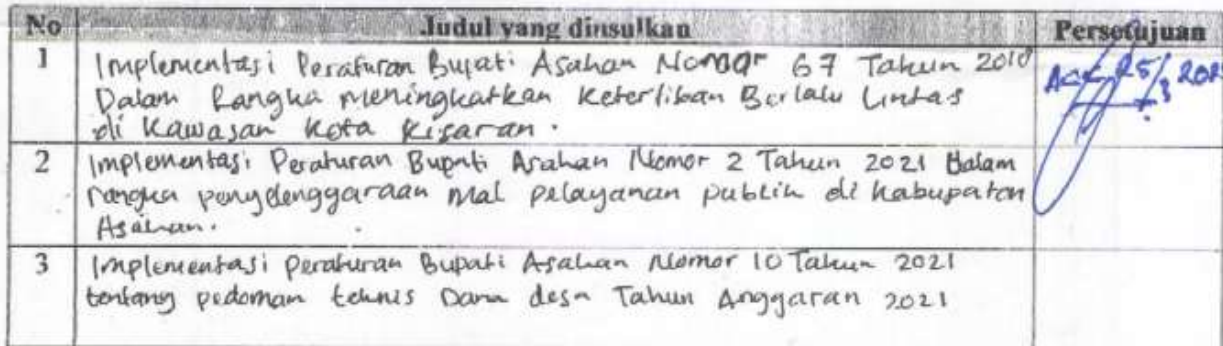 No Judul yang diusulkan Persetujuan
1 Implementasi Peraturan Bupati Asahan Nomor 67 Tahun 2018
Dalam Rangka meningkatkan Ketertiban Berlalu Lintas
di Kawasan Kota Kisaran.
Acc 25/3 202
2 Implementasi Peraturan Bupati Asahan Nomor 2 Tahun 2021 Dalam
rangka penyelenggaraan Mal pelayanan publik di Kabupaten
Asahan.
3 Implementasi peraturan Bupati Asahan Nomor 10 Tahun 2021
tentang pedoman teknis Dana desa Tahun Anggaran 2021